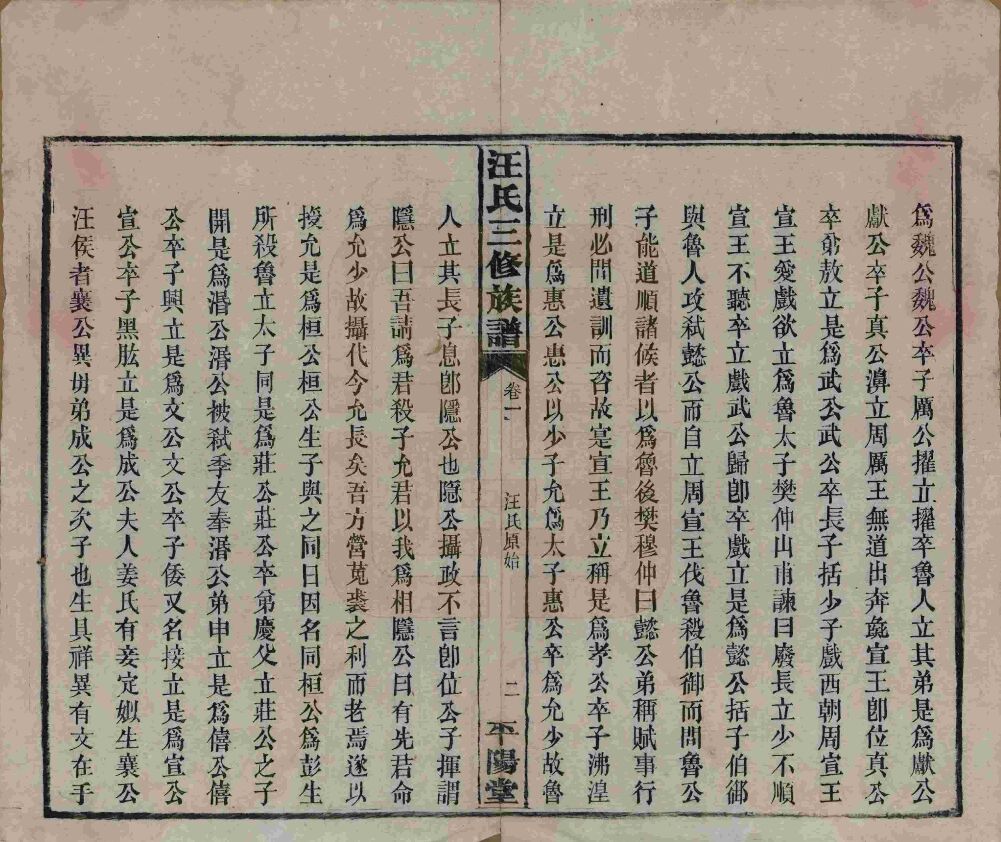 爲魏公魏公卒子厲公擢立擢卒魯人立其弟是爲獻公
獻公卒子真公濞立周厲王無道出奔彘宣王卽位真公
卒弟敖立是爲武公武公卒長子括少子戲西朝周宣王
宣王愛戲欲立爲魯太子樊仲山甫諫曰廢長立少不順
宣王不聽卒立戲武公歸卽卒戲立是爲懿公括子伯御
與魯人攻弒懿公而自立周宣王伐魯殺伯御而問魯公
子能道順諸候者以爲魯後樊穆仲曰懿公弟稱賦事行
刑必問遺訓而咨故寔宣王乃立稱是爲孝公卒子沸湟
立是爲惠公惠公以少子允爲太子惠公卒爲允少故魯
汪氏三修族譜
卷一
汪氏原始
二
平陽堂
人立其長子息卽隱公也隱公攝政不言卽位公子揮謂
隱公曰吾請爲君殺子允君以我爲相隱公曰有先君命
爲允少故攝代今允長矣吾方營菟裘之利而老焉遂以
授允是爲桓公桓公生子與之同日因名同桓公爲彭生
所殺魯立太子同是爲莊公莊公卒弟慶父立莊公之子
開是爲湣公湣公被弒季友奉湣公弟申立是爲僖公僖
公卒子興立是爲文公文公卒子倭又名接立是爲宣公
宣公卒子黑肱立是爲成公夫人姜氏有妾定姒生襄公
汪侯者襄公異毋弟成公之次子也生具祥異有文在手